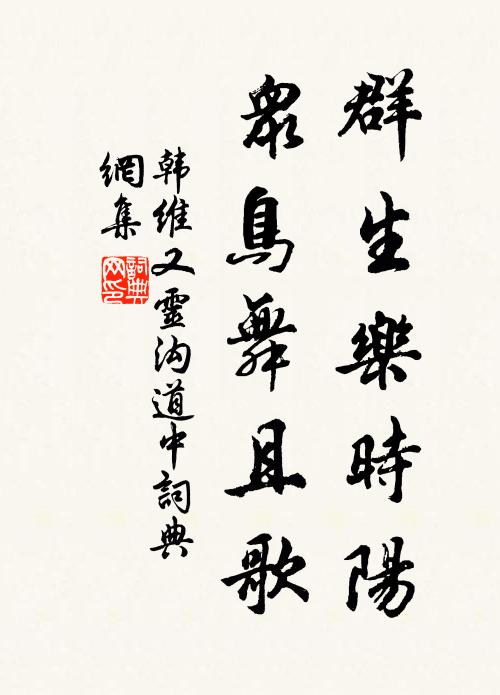 群生樂時陽
眾鳥舞且歌
韩維又靈沟道中詞典
網集
詞典
网印